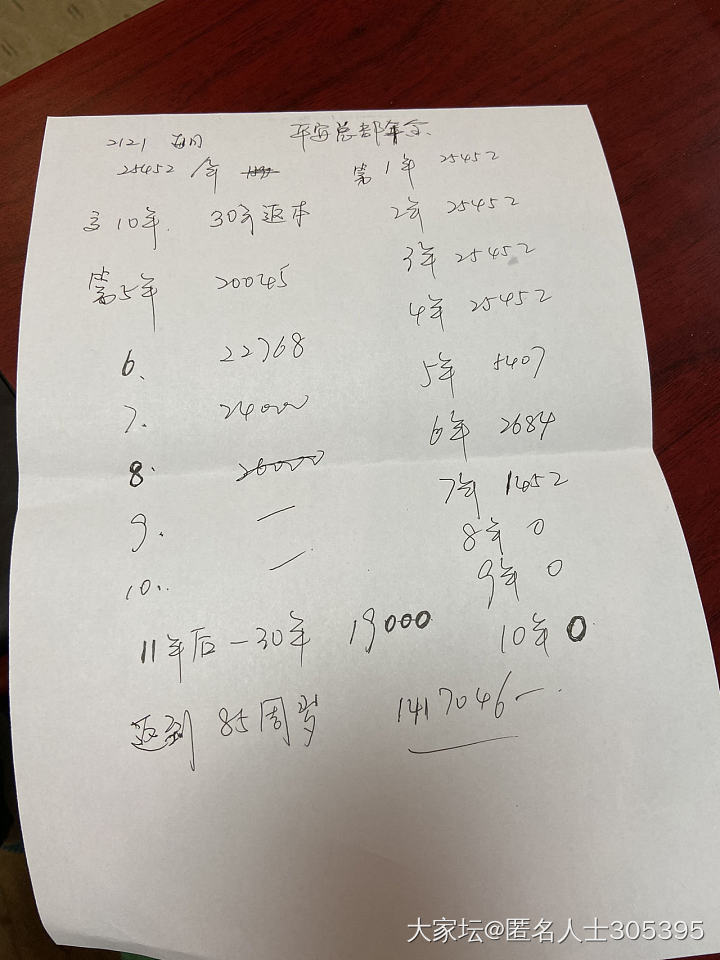 平安总部年金
2121 每月
25452 年
第1年 25452
交10年. 30年返本
2年 25452
3年 25452
第5年 20045
4年 25452
6. 22768
5年 5407
7. 24000
6年 2684
8. 26000
7年 1452
9. —
8年 0
10. —
9年 0
11年后－30年 19000
10年 0
返到 85周岁 1417046－.
大家坛@匿名人士305395